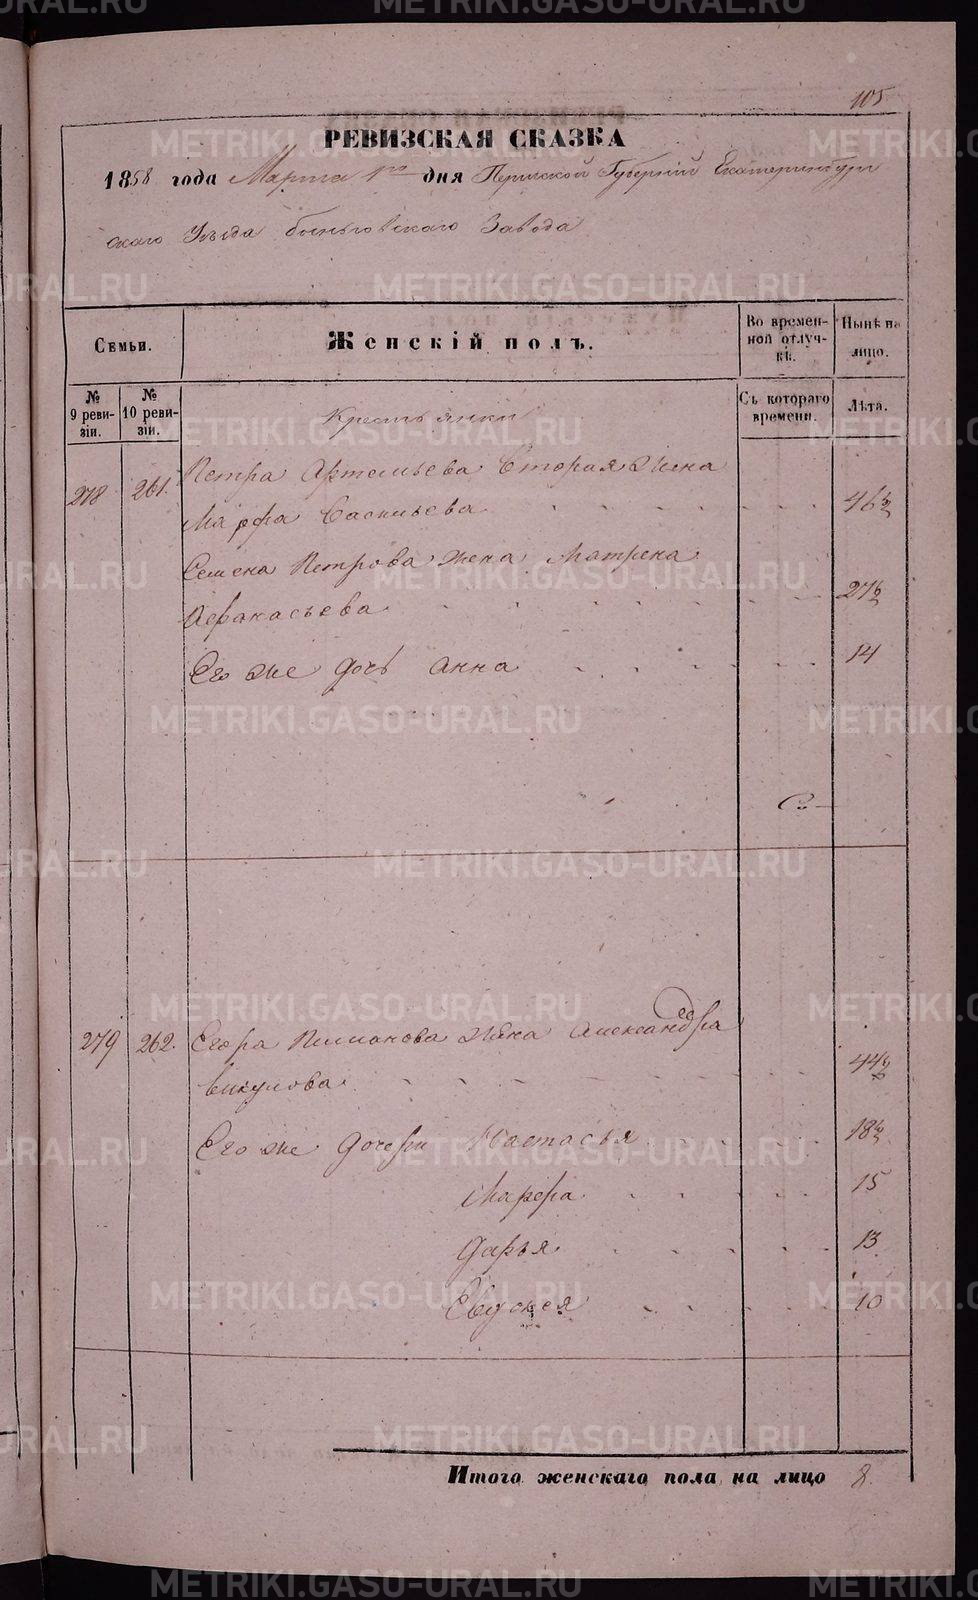 105
РЕВИЗСКАЯ СКАЗКА
1858 года Марта 1го дня Пермской Губернiи Екатеринбург
скаго Уѣзда Быньговскаго Завода
Семьи.
Женскiй полъ.
Во времен-
ной отлуч-
кѣ.
Нынѣ на
лицо.
№
9 реви-
зiи.
№
10 реви-
зiи.
Съ котораго
времени.
Лѣта.
Крестьянки
278 261. Петра Артемьева вторая жена
Марфа Васильева 46½
Семена Петрова жена Матрена
Афанасьева 27½
Его же дочь Анна 14
279 262. Егора Пимонова жена Александра
Викулова 44½
Его же дочери Настасья 18½
Марфа 15
Дарья 13
Евдокея 10
Итого женскаго пола на лицо 8.
METRIKI.GASO-URAL.RU